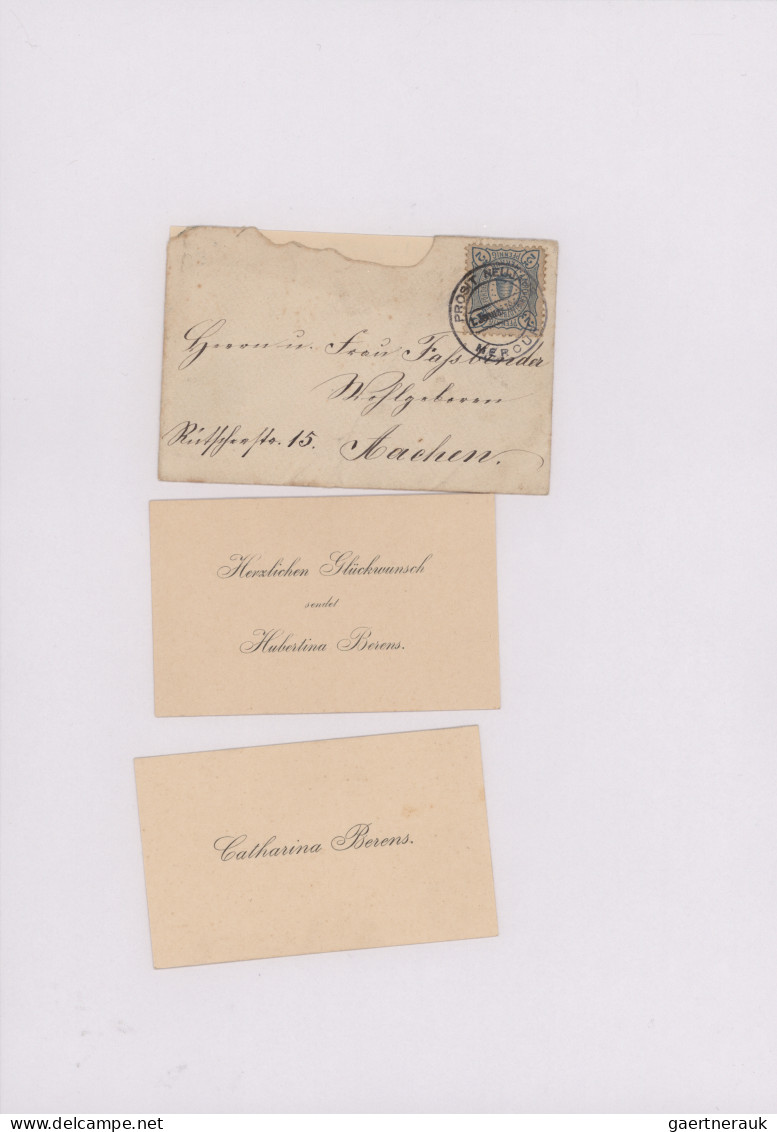 PROSIT NEUJ
MERCU
2 PFENNIG 2
Herrn u. Frau Fassbender
Wohlgeboren
Rütscherstr. 15. Aachen.
Herzlichen Glückwunsch
sendet
Hubertina Berens.
Catharina Berens.
gaertnerauk